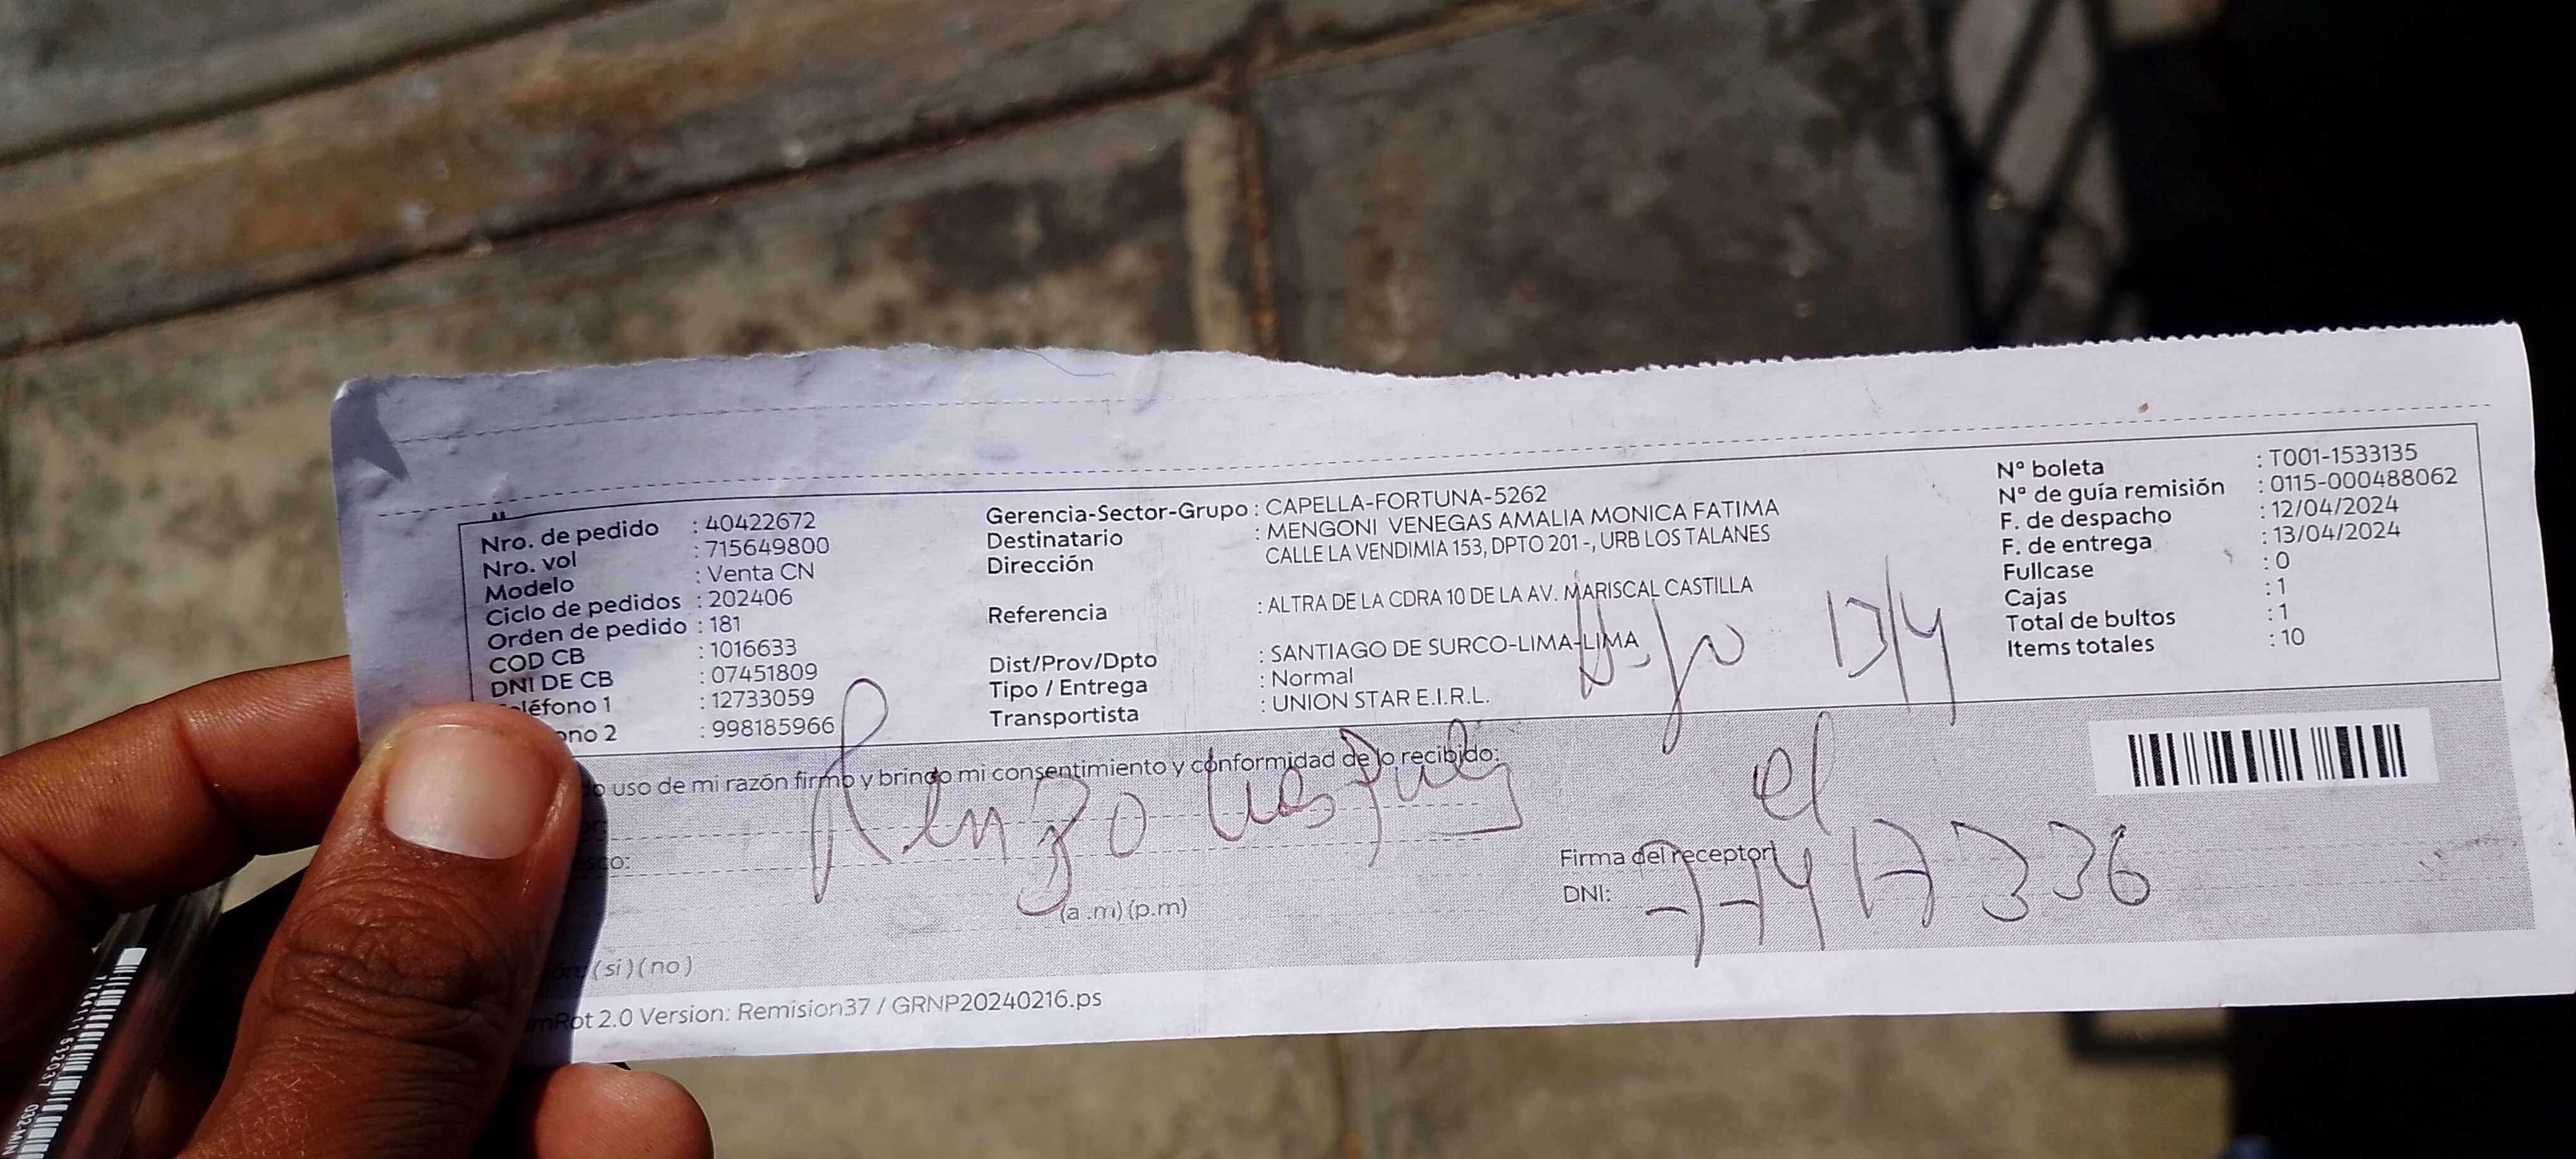 Nro. de pedido : 40422672
Nro. vol : 715649800
Modelo : Venta CN
Ciclo de pedidos : 202406
Orden de pedido : 181
COD CB : 1016633
DNI DE CB : 07451809
léfono 1 : 12733059
ono 2 : 998185966
Gerencia-Sector-Grupo : CAPELLA-FORTUNA-5262
Destinatario : MENGONI VENEGAS AMALIA MONICA FATIMA
Dirección CALLE LA VENDIMIA 153, DPTO 201 -, URB LOS TALANES
Referencia : ALTRA DE LA CDRA 10 DE LA AV. MARISCAL CASTILLA
Dist/Prov/Dpto : SANTIAGO DE SURCO-LIMA-LIMA
Tipo / Entrega : Normal
Transportista : UNION STAR E.I.R.L.
N° boleta : T001-1533135
N° de guía remisión : 0115-000488062
F. de despacho : 12/04/2024
F. de entrega : 13/04/2024
Fullcase : 0
Cajas : 1
Total de bultos : 1
Items totales : 10
13/4
o uso de mi razón firmo y brindo mi consentimiento y conformidad de lo recibido:
Renzo
el
esco:
Firma del receptor
DNI:
(a .m) (p.m)
ón: (si) (no)
mRot 2.0 Version: Remision37 / GRNP20240216.ps